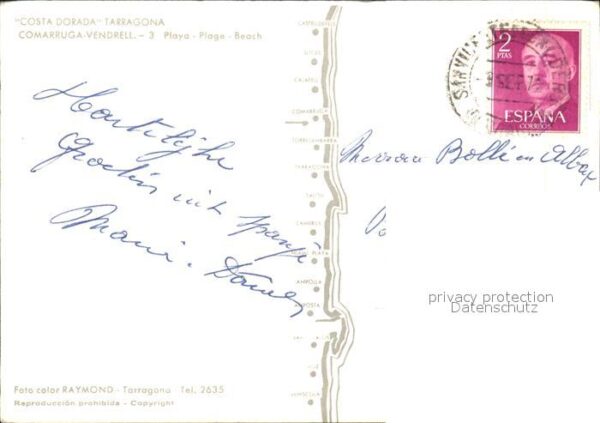 "COSTA DORADA" TARRAGONA
COMARRUGA-VENDRELL. - 3 Playa - Plage - Beach
Hartelijke
Groeten uit Spanje
Maria - Daniel
CASTELLDEFELS
SITGES
CALAFELL
COMARRUGA
TORREDEMBARRA
TARRAGONA
SALOU
CAMBRILS
MIAMI PLAYA
AMPOLLA
AMPOSTA
VINAROZ
2
PTAS
ESPAÑA
CORREOS
SET
Bolle en
privacy protection
Datenschutz
Foto color RAYMOND - Tarragona - Tel. 2635
Reproducción prohibida - Copyright